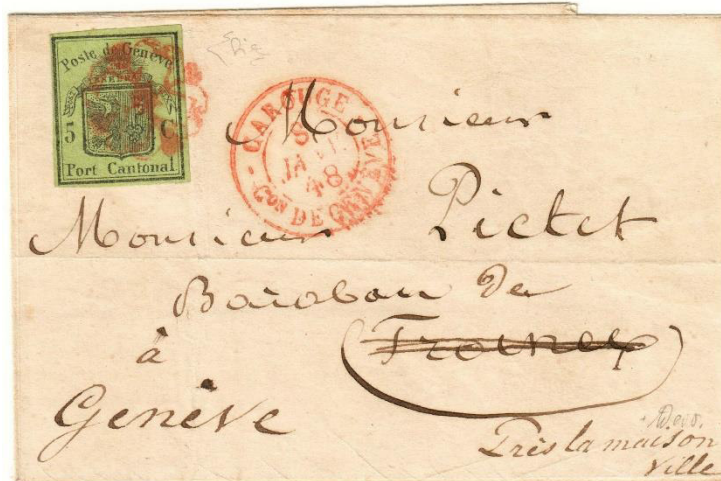 Poste de Genève
5 C
Port Cantonal
CAROUGE
8
JANV
48
Con DE GENÈVE
Monsieur
Monsieur Pictet
de
à
Genève
Près la maison
Ville